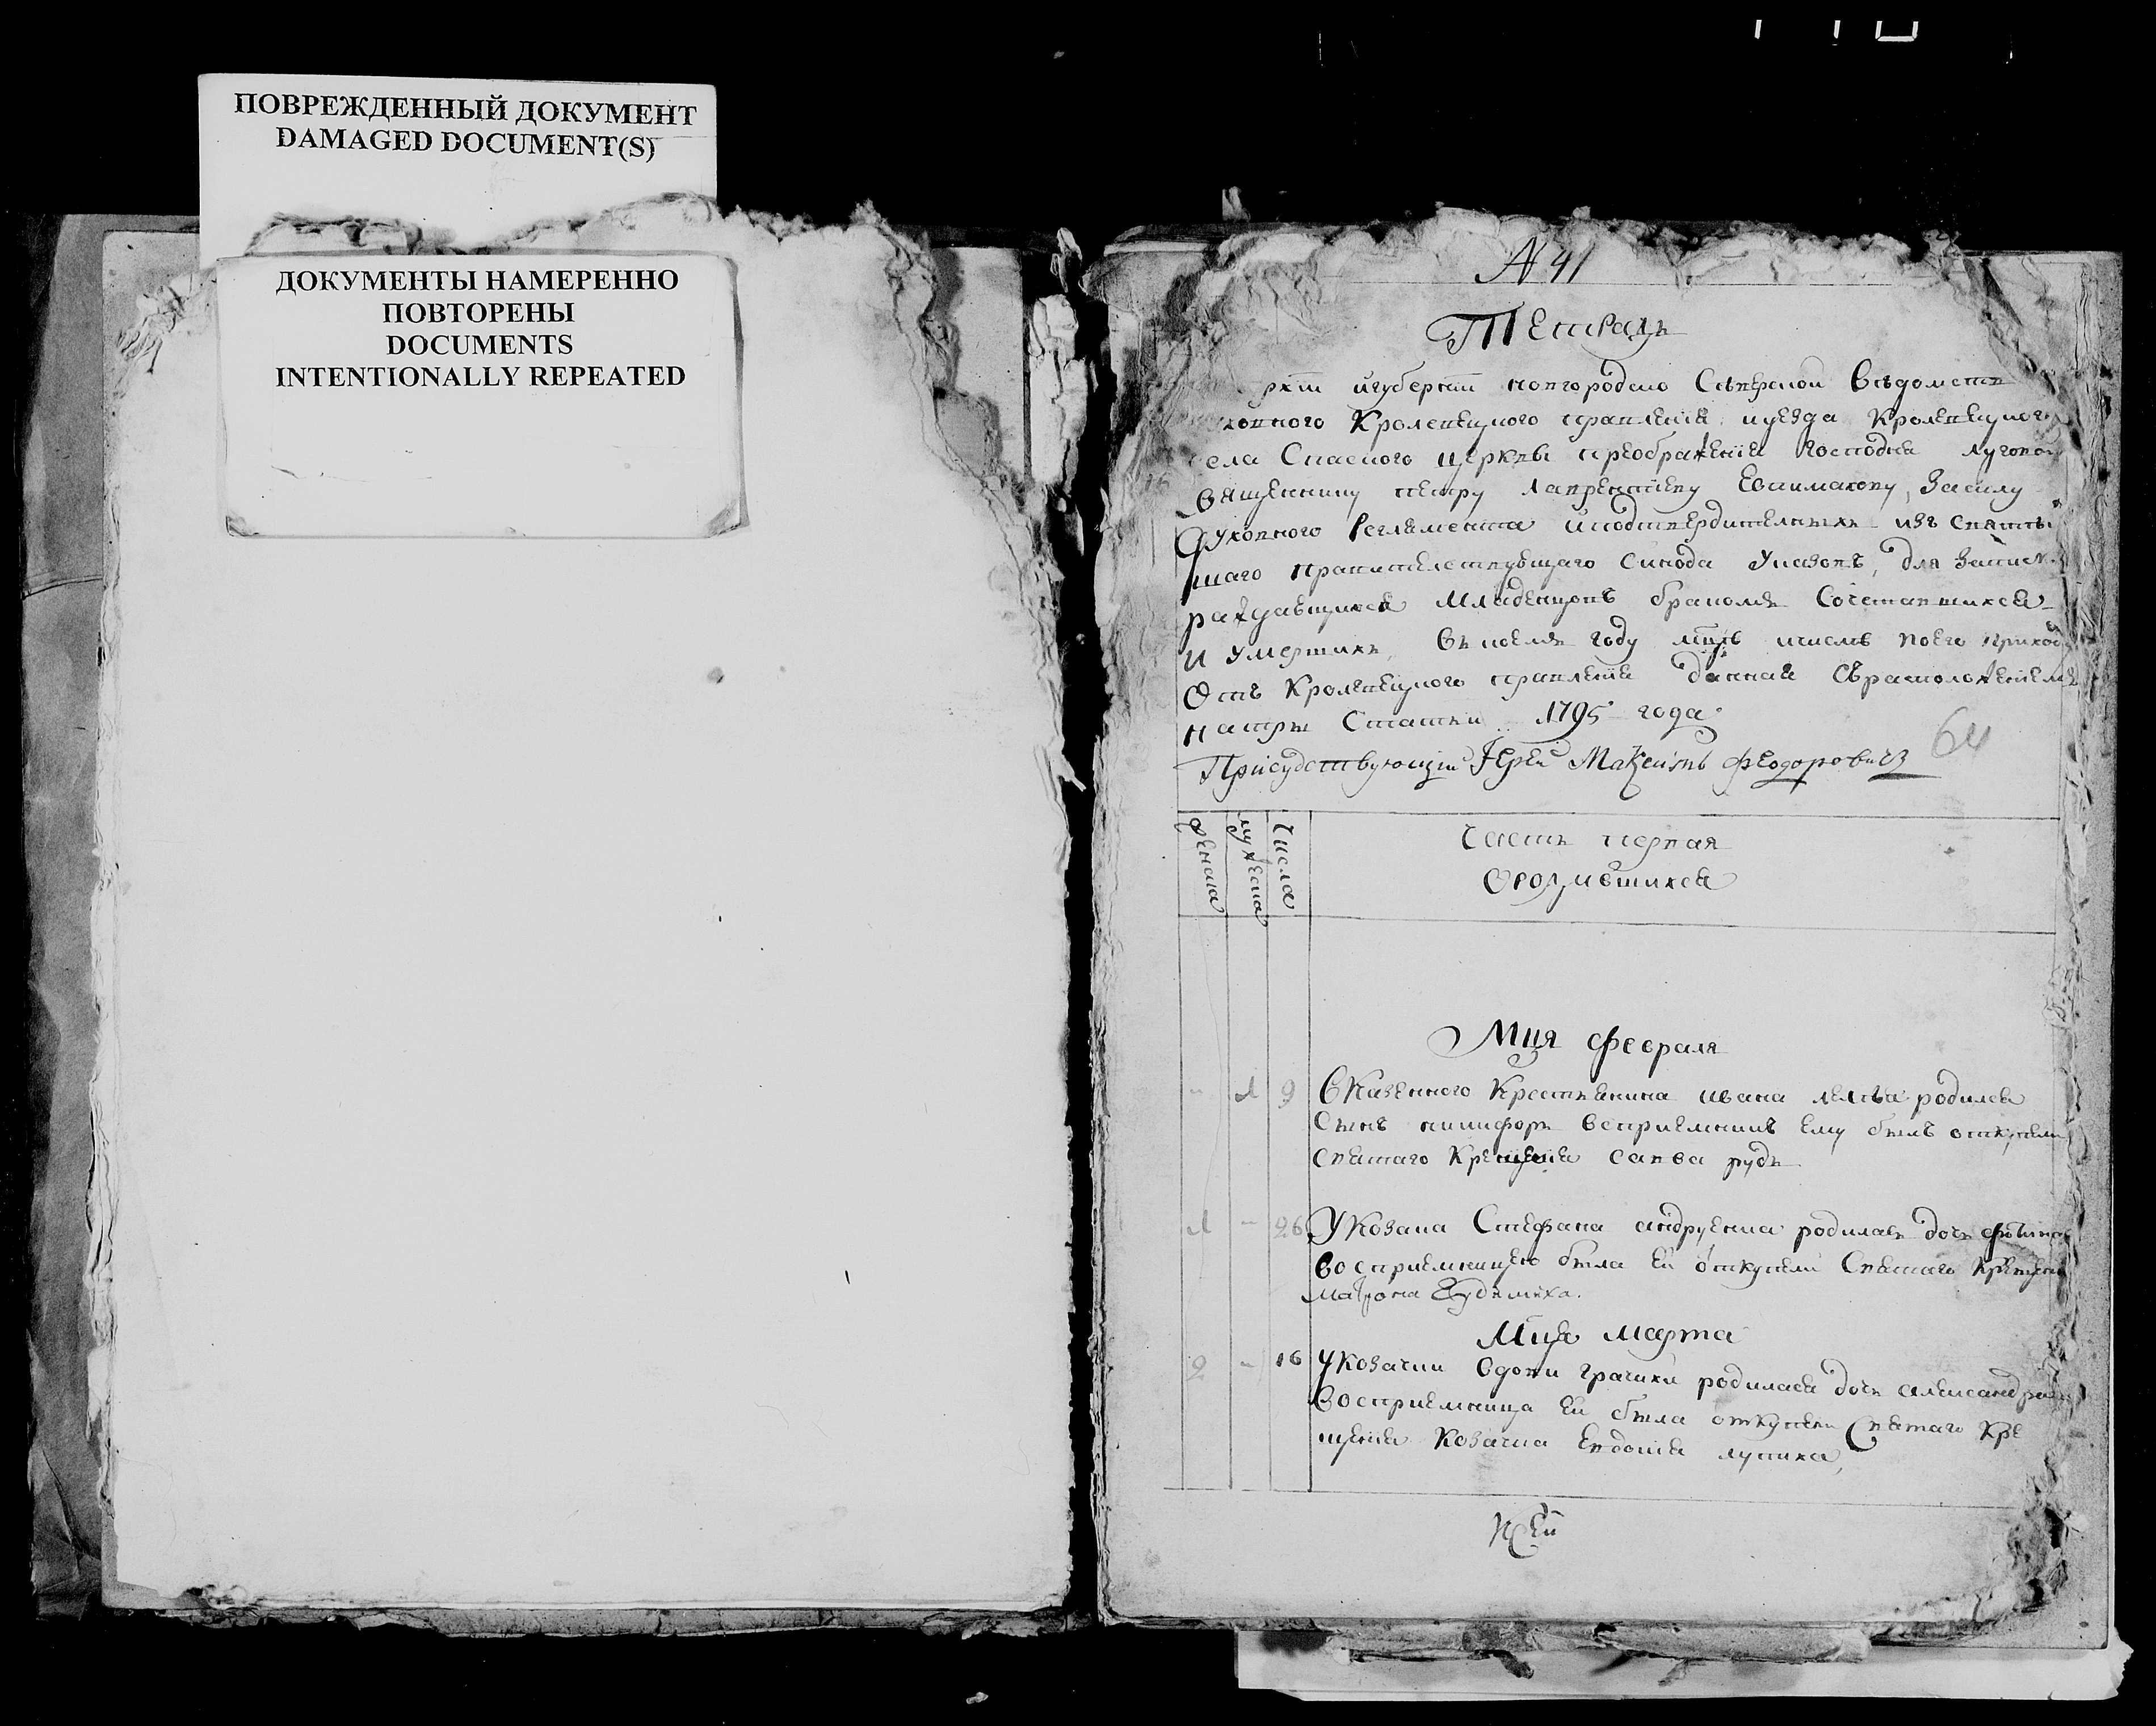 ПОВРЕЖДЕННЫЙ ДОКУМЕНТ
DAMAGED DOCUMENT(S)
ДОКУМЕНТЫ НАМЕРЕННО
ПОВТОРЕНЫ
DOCUMENTS
INTENTIONALLY REPEATED
№ 41
Тетрадь
игубернии новгородско Северской Ведомств
Кролевецкого правления иуезда Кролевецкого
села Спаского церквы преображения Господня
Священнику петру Лаврентиеву Всилу
Духовного Регламента иподтвердителныхъ изъ святѣ
шаго правителствующаго Синода Указовъ, для Записки
раждавшихся Младенцовъ бракомъ Сочетавшихся
И умершихъ, Въ году числъ приходу
Отъ Кролевецкого правления данная Срасположениемъ
натры Статьи 1795 года
Присудствующій Іерей Федоровичъ
64
женска
мужеска
Числа
Часть первая
Ородившихся
Мця февраля
- 1 9 Указенного Крестьянина ивана родился
Сынъ никифоръ восприемникъ ему былъ откупели
святаго Крещения савва рудь
1 - 26 Укозака Стефана андруенка родилась дочь
восприемницею была ей откупели Святаго Крещения
Мця марта
2 - 16 Укозачки вдови грачихи родилася дочь александра
восприемница ей была откупели Святаго Кре
щения Козачка Евдокия лупиха,